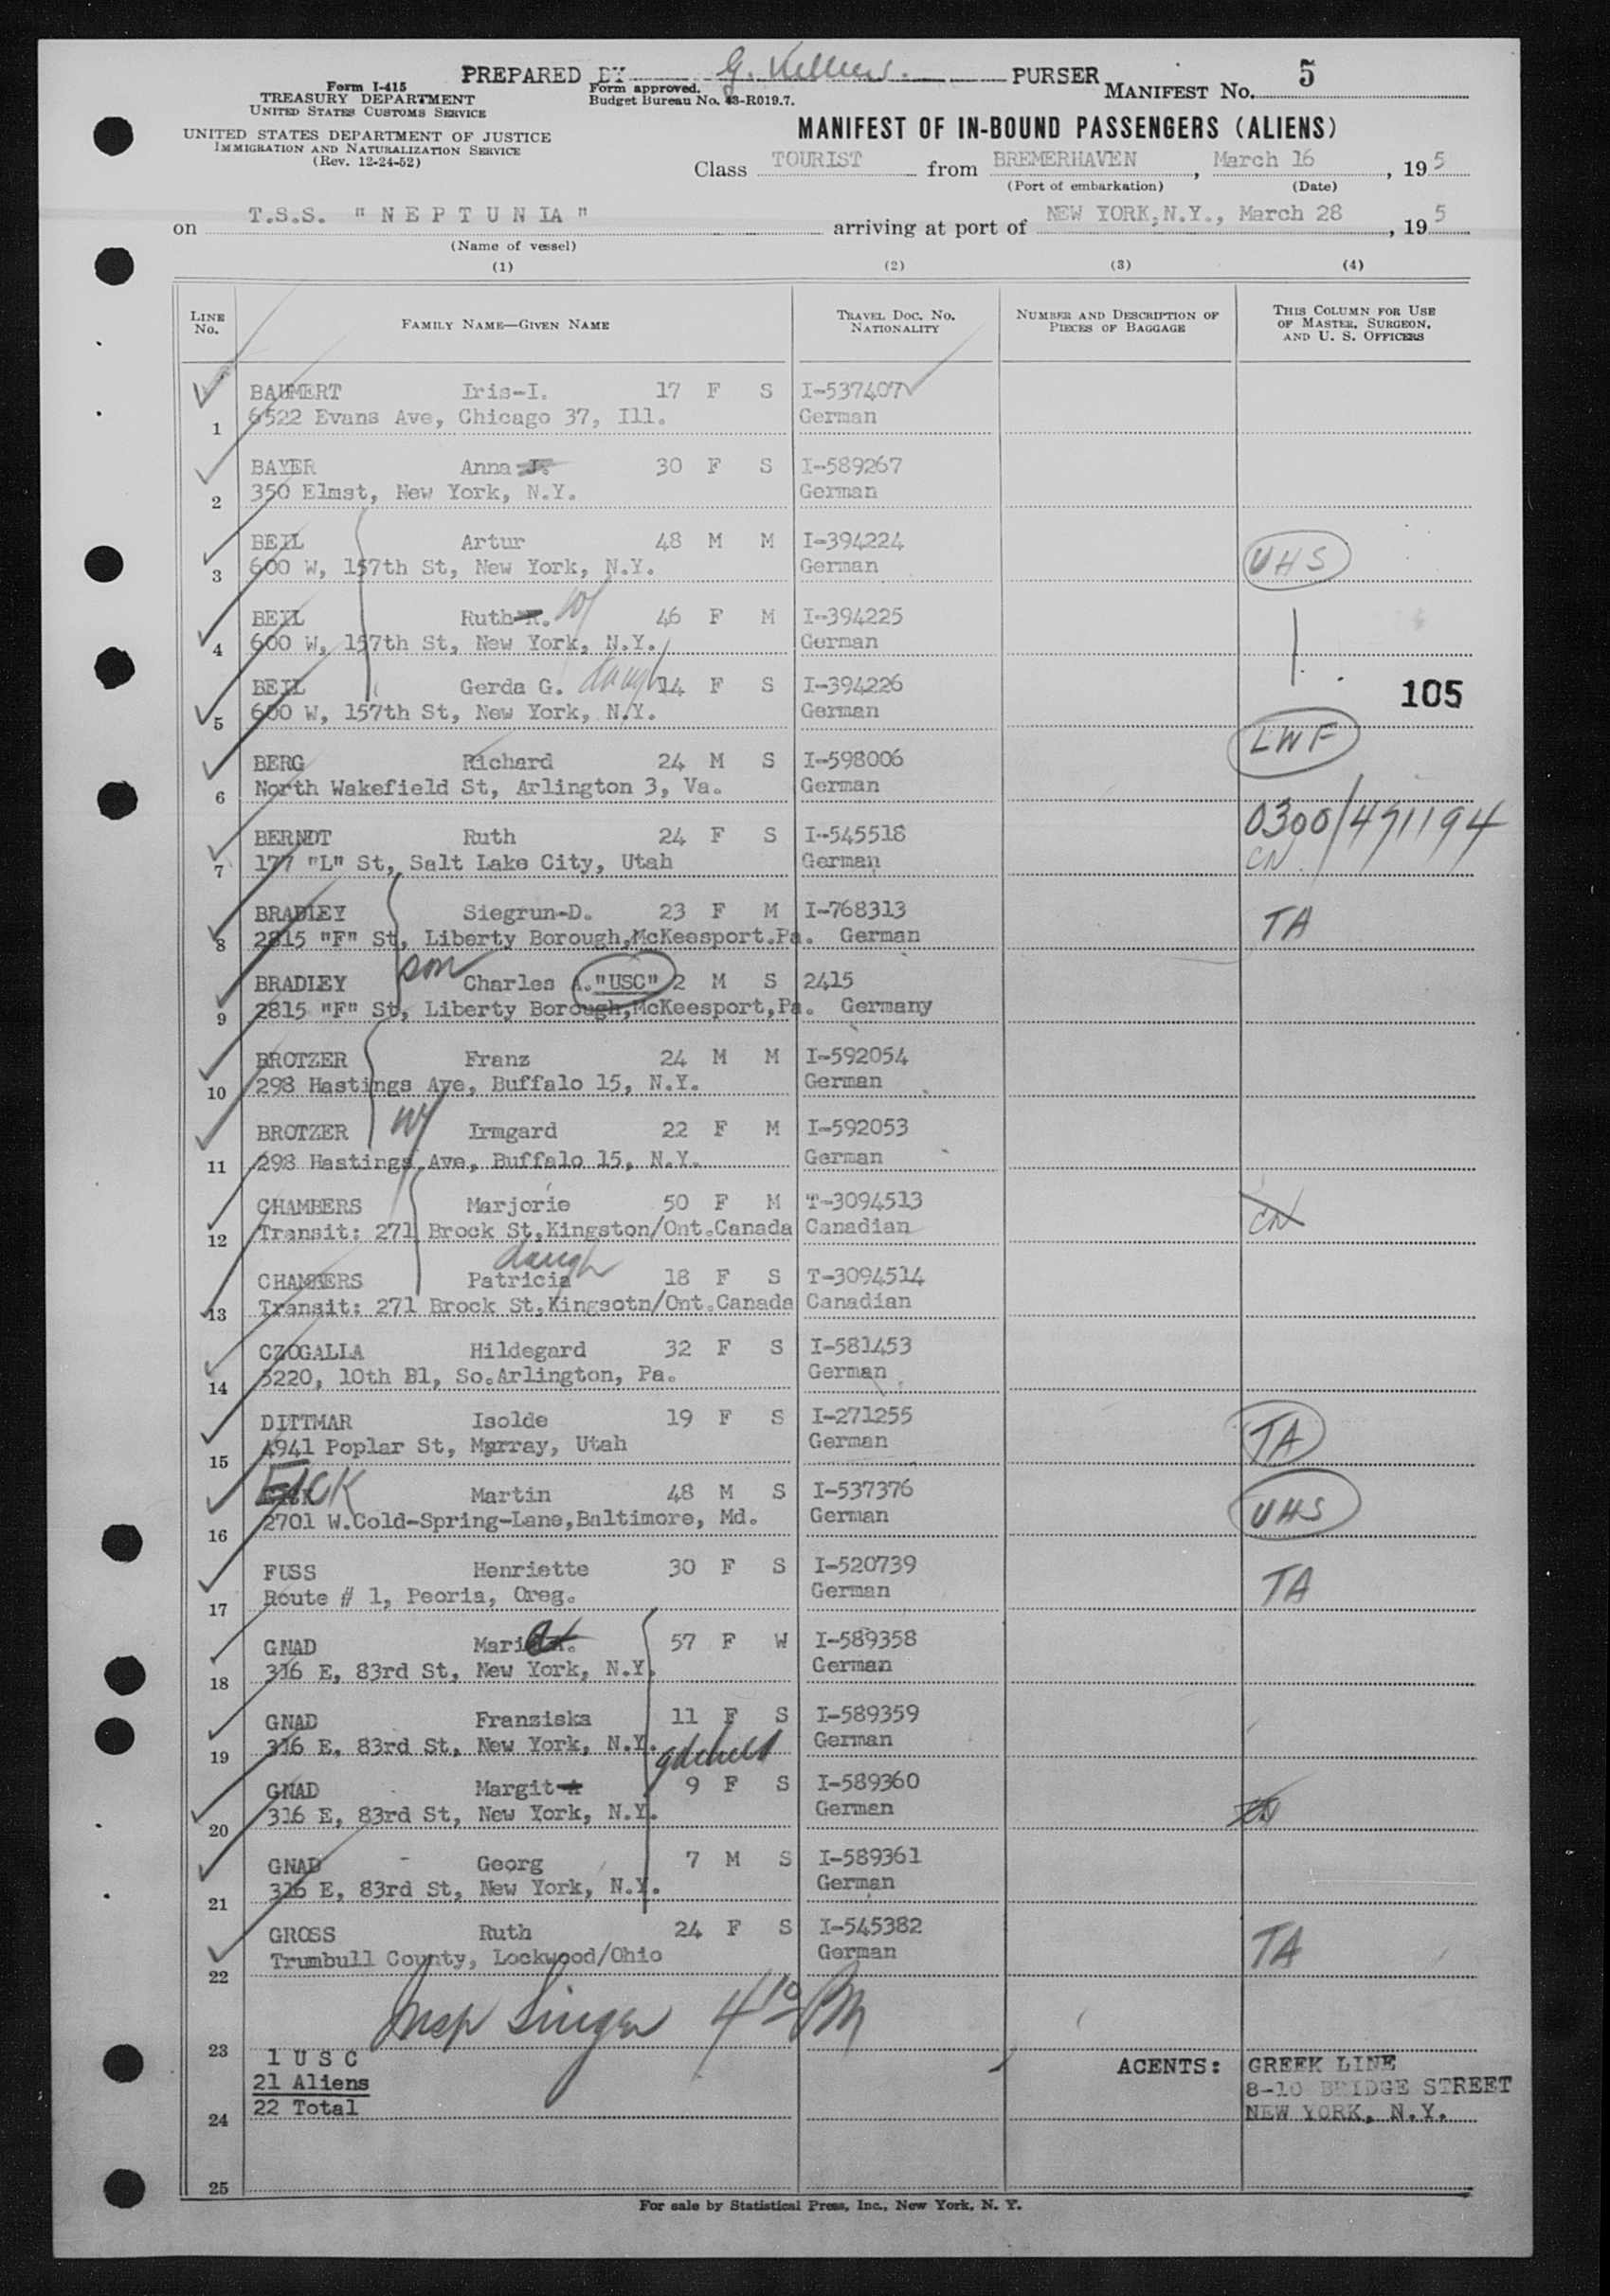 PREPARED BY G. Kelleers. PURSER
Form I-415
TREASURY DEPARTMENT
UNITED STATES CUSTOMS SERVICE
Form approved.
Budget Bureau No. 43-R019.7.
MANIFEST NO. 5
UNITED STATES DEPARTMENT OF JUSTICE
IMMIGRATION AND NATURALIZATION SERVICE
(Rev. 12-24-52)
MANIFEST OF IN-BOUND PASSENGERS (ALIENS)
Class TOURIST from BREMERHAVEN, March 16, 195
(Port of embarkation) (Date)
on T.S.S. "NEPTUNIA" arriving at port of NEW YORK, N.Y., March 28, 195
(Name of vessel)
(1) (2) (3) (4)
LINE NO. FAMILY NAME—GIVEN NAME TRAVEL DOC. NO. NATIONALITY NUMBER AND DESCRIPTION OF PIECES OF BAGGAGE THIS COLUMN FOR USE OF MASTER, SURGEON, AND U. S. OFFICERS
BAUMERT Iris-I. 17 F S I-537407
1 6522 Evans Ave, Chicago 37, Ill. German
BAYER Anna J. 30 F S I-589267
2 350 Elmst, New York, N.Y. German
BEIL Artur 48 M M I-394224 UHS
3 600 W, 157th St, New York, N.Y. German
BEIL Ruth R. W/ 46 F M I-394225
4 600 W, 157th St, New York, N.Y. German
BEIL Gerda G. daugh 14 F S I-394226 105
5 600 W, 157th St, New York, N.Y. German
BERG Richard 24 M S I-598006 LWF
6 North Wakefield St, Arlington 3, Va. German
BERNDT Ruth 24 F S I-545518 0300/471194
7 177 "L" St, Salt Lake City, Utah German CN
BRADLEY Siegrun-D. 23 F M I-768313 TA
8 2815 "F" St, Liberty Borough,McKeesport.Pa. German
BRADLEY son Charles A."USC" 2 M S 2415
9 2815 "F" St, Liberty Borough,McKeesport,Pa. Germany
BROTZER Franz 24 M M I-592054
10 298 Hastings Ave, Buffalo 15, N.Y. German
BROTZER W/ Irmgard 22 F M I-592053
11 298 Hastings Ave, Buffalo 15, N.Y. German
CHAMBERS Marjorie 50 F M T-3094513 CN
12 Transit: 271 Brock St,Kingston/Ont.Canada Canadian
daugh
CHAMBERS Patricia 18 F S T-3094514
13 Transit: 271 Brock St,Kingsotn/Ont.Canada Canadian
CZOGALLA Hildegard 32 F S I-581453
14 5220, 10th Bl, So.Arlington, Pa. German
DITTMAR Isolde 19 F S I-271255 TA
15 4941 Poplar St, Murray, Utah German
EICK Martin 48 M S I-537376 UHS
16 2701 W.Cold-Spring-Lane,Baltimore, Md. German
FUSS Henriette 30 F S I-520739 TA
17 Route # 1, Peoria, Oreg. German
GNAD Maria 57 F W I-589358
18 316 E, 83rd St, New York, N.Y. German
GNAD Franziska 11 F S I-589359
19 316 E, 83rd St, New York, N.Y. German
gdchild
GNAD Margit A 9 F S I-589360 CN
20 316 E, 83rd St, New York, N.Y. German
GNAD Georg 7 M S I-589361
21 316 E, 83rd St, New York, N.Y. German
GROSS Ruth 24 F S I-545382 TA
22 Trumbull County, Lockwood/Ohio German
Insp Singer 4 10 PM
23
1 U S C
21 Aliens
22 Total
24
AGENTS: GREEK LINE
8-10 BRIDGE STREET
NEW YORK, N.Y.
25
For sale by Statistical Press, Inc., New York, N. Y.